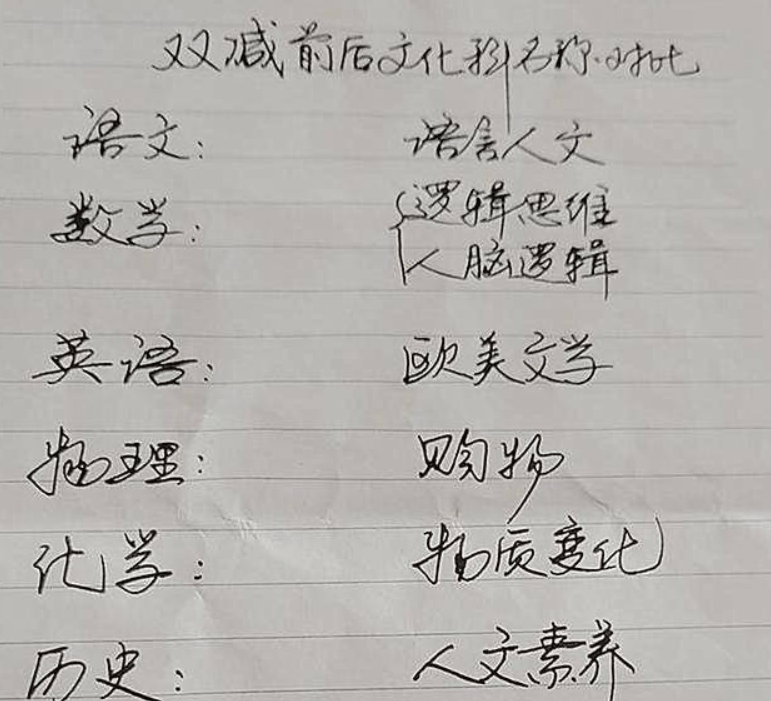 双减前后文化科名称对比
语文: 语言人文
数学: 逻辑思维
人脑逻辑
英语: 欧美文学
物理: 购物
化学: 物质变化
历史: 人文素养